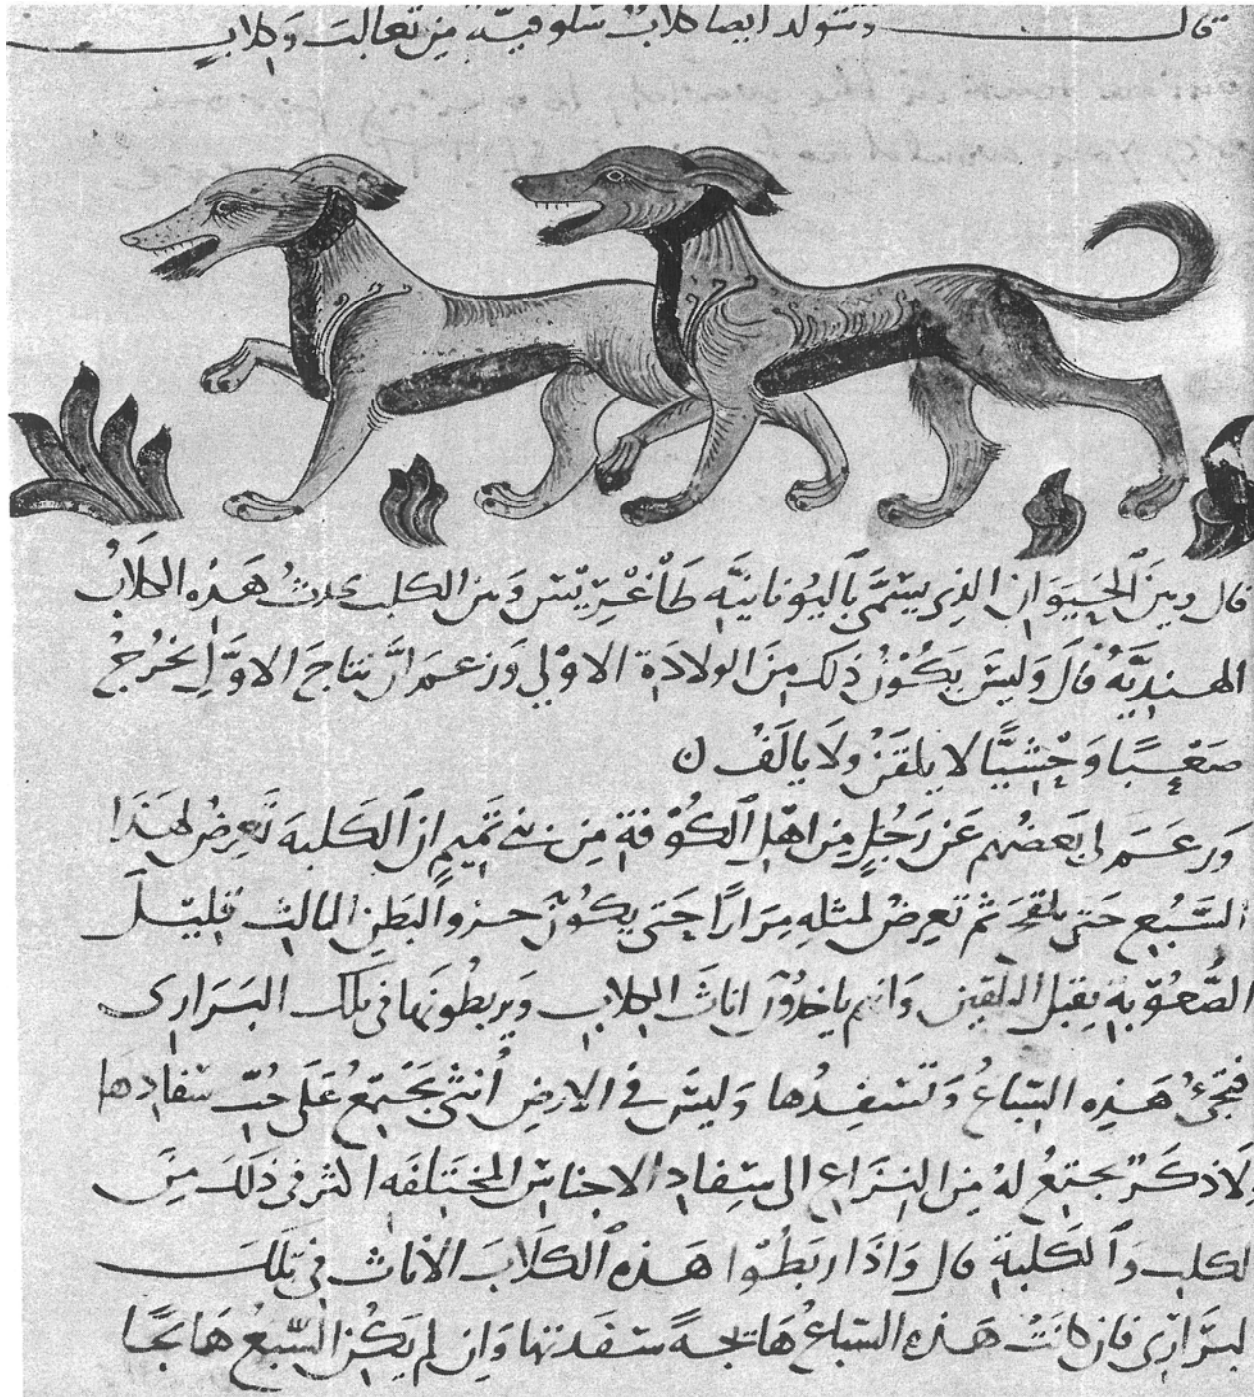 قال وتتولد ايضا كلاب سلوقية من ثعالب وكلاب
قال وبين الحيوان الذي يسمى باليونانية طاغريس وبين الكلب يحدث هذه الكلاب
الهندية قال وليس يكون ذلك من الولادة الاولى وزعم ان نتاج الاول يخرج
صعبا وحشيا لا يلقن ولا يالف ن
وزعم لى بعضهم عن رجل من اهل الكوفة من بني تميم ان الكلبة تعرض لهذا
السبع حتى تلقح ثم تعرض لمثله مرارا حتى يكون جرو البطن الثالث قليل
الصعوبة يقبل التلقين وانهم ياخذون اناث الكلاب ويربطونها في تلك البرارى
فتجيء هذه السباع وتسفدها وليس في الارض أنثى يجتمع على حب سفادها
لا ذكر يجتمع له من النزاع الى سفاد الاجناس المختلفه اكثر في ذلك من
لكلب والكلبة قال واذا ربطوا هذه الكلاب الاناث في تلك
لبرارى فان كانت هذه السباع هائجة سفدتها وان لم يكن السبع هائجا